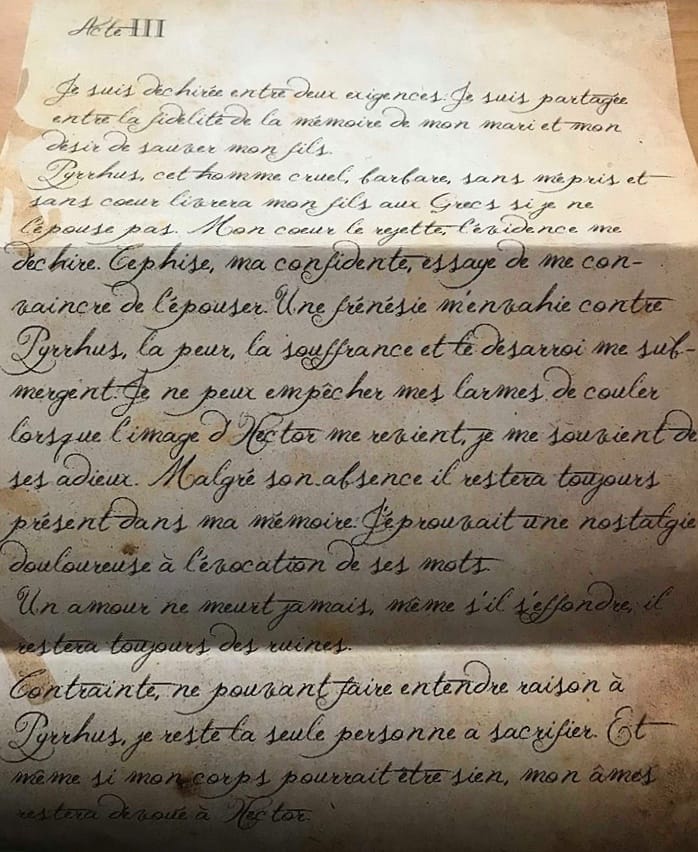 Acte III
Je suis déchirée entre deux exigences. Je suis partagée
entre la fidélité de la mémoire de mon mari et mon
désir de sauver mon fils.
Pyrrhus, cet homme cruel, barbare, sans mépris et
sans coeur livrera mon fils aux Grecs si je ne
l'épouse pas. Mon coeur le rejette, l'évidence me
déchire. Cephise, ma confidente, essaye de me con-
vaincre de l'épouser. Une frénésie m'envahie contre
Pyrrhus, la peur, la souffrance et le désarroi me sub-
mergent. Je ne peux empêcher mes larmes de couler
lorsque l'image d'Hector me revient, je me souvient de
ses adieux. Malgré son absence il restera toujours
présent dans ma mémoire. J'éprouvait une nostalgie
douloureuse à l'évocation de ses mots.
Un amour ne meurt jamais, même s'il s'effondre, il
restera toujours des ruines.
Contrainte, ne pouvant faire entendre raison à
Pyrrhus, je reste la seule personne à sacrifier. Et
même si mon corps pourrait être sien, mon âmes
restera dévoué à Hector.